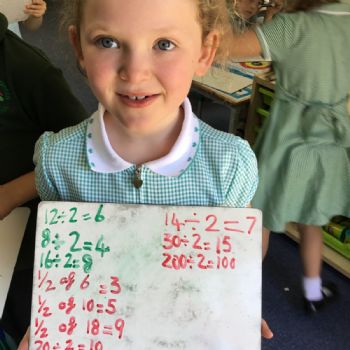 12÷2=6
8÷2=4
16÷2=8
½ of 6 =3
½ of 10=5
½ of 18=9
20÷2=10
14÷2=7
30÷2=15
200÷2=100